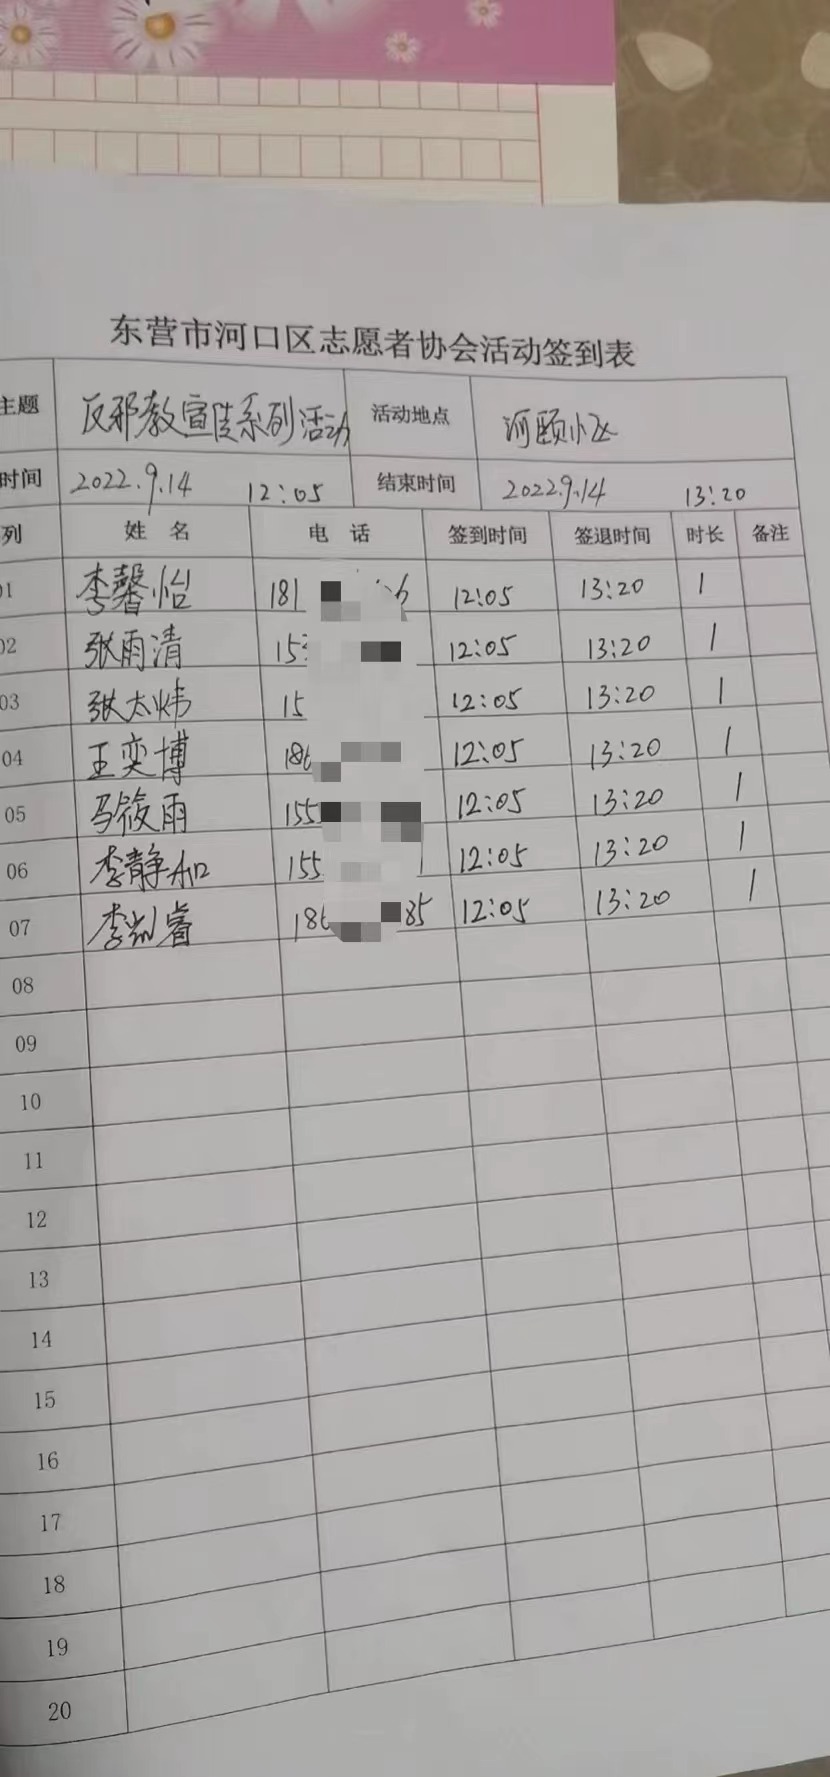 东营市河口区志愿者协会活动签到表
主题 反邪教宣传系列活动 活动地点 河颐小区
时间 2022.9.14 12:05 结束时间 2022.9.14 13:20
列 姓 名 电 话 签到时间 签退时间 时长 备注
01 李馨怡 181 6 12:05 13:20 1
02 张雨清 15 12:05 13:20 1
03 张太炜 15 12:05 13:20 1
04 王奕博 186 12:05 13:20 1
05 马筱雨 155 12:05 13:20 1
06 李静和 155 12:05 13:20 1
07 李 睿 186 85 12:05 13:20 1
08
09
10
11
12
13
14
15
16
17
18
19
20